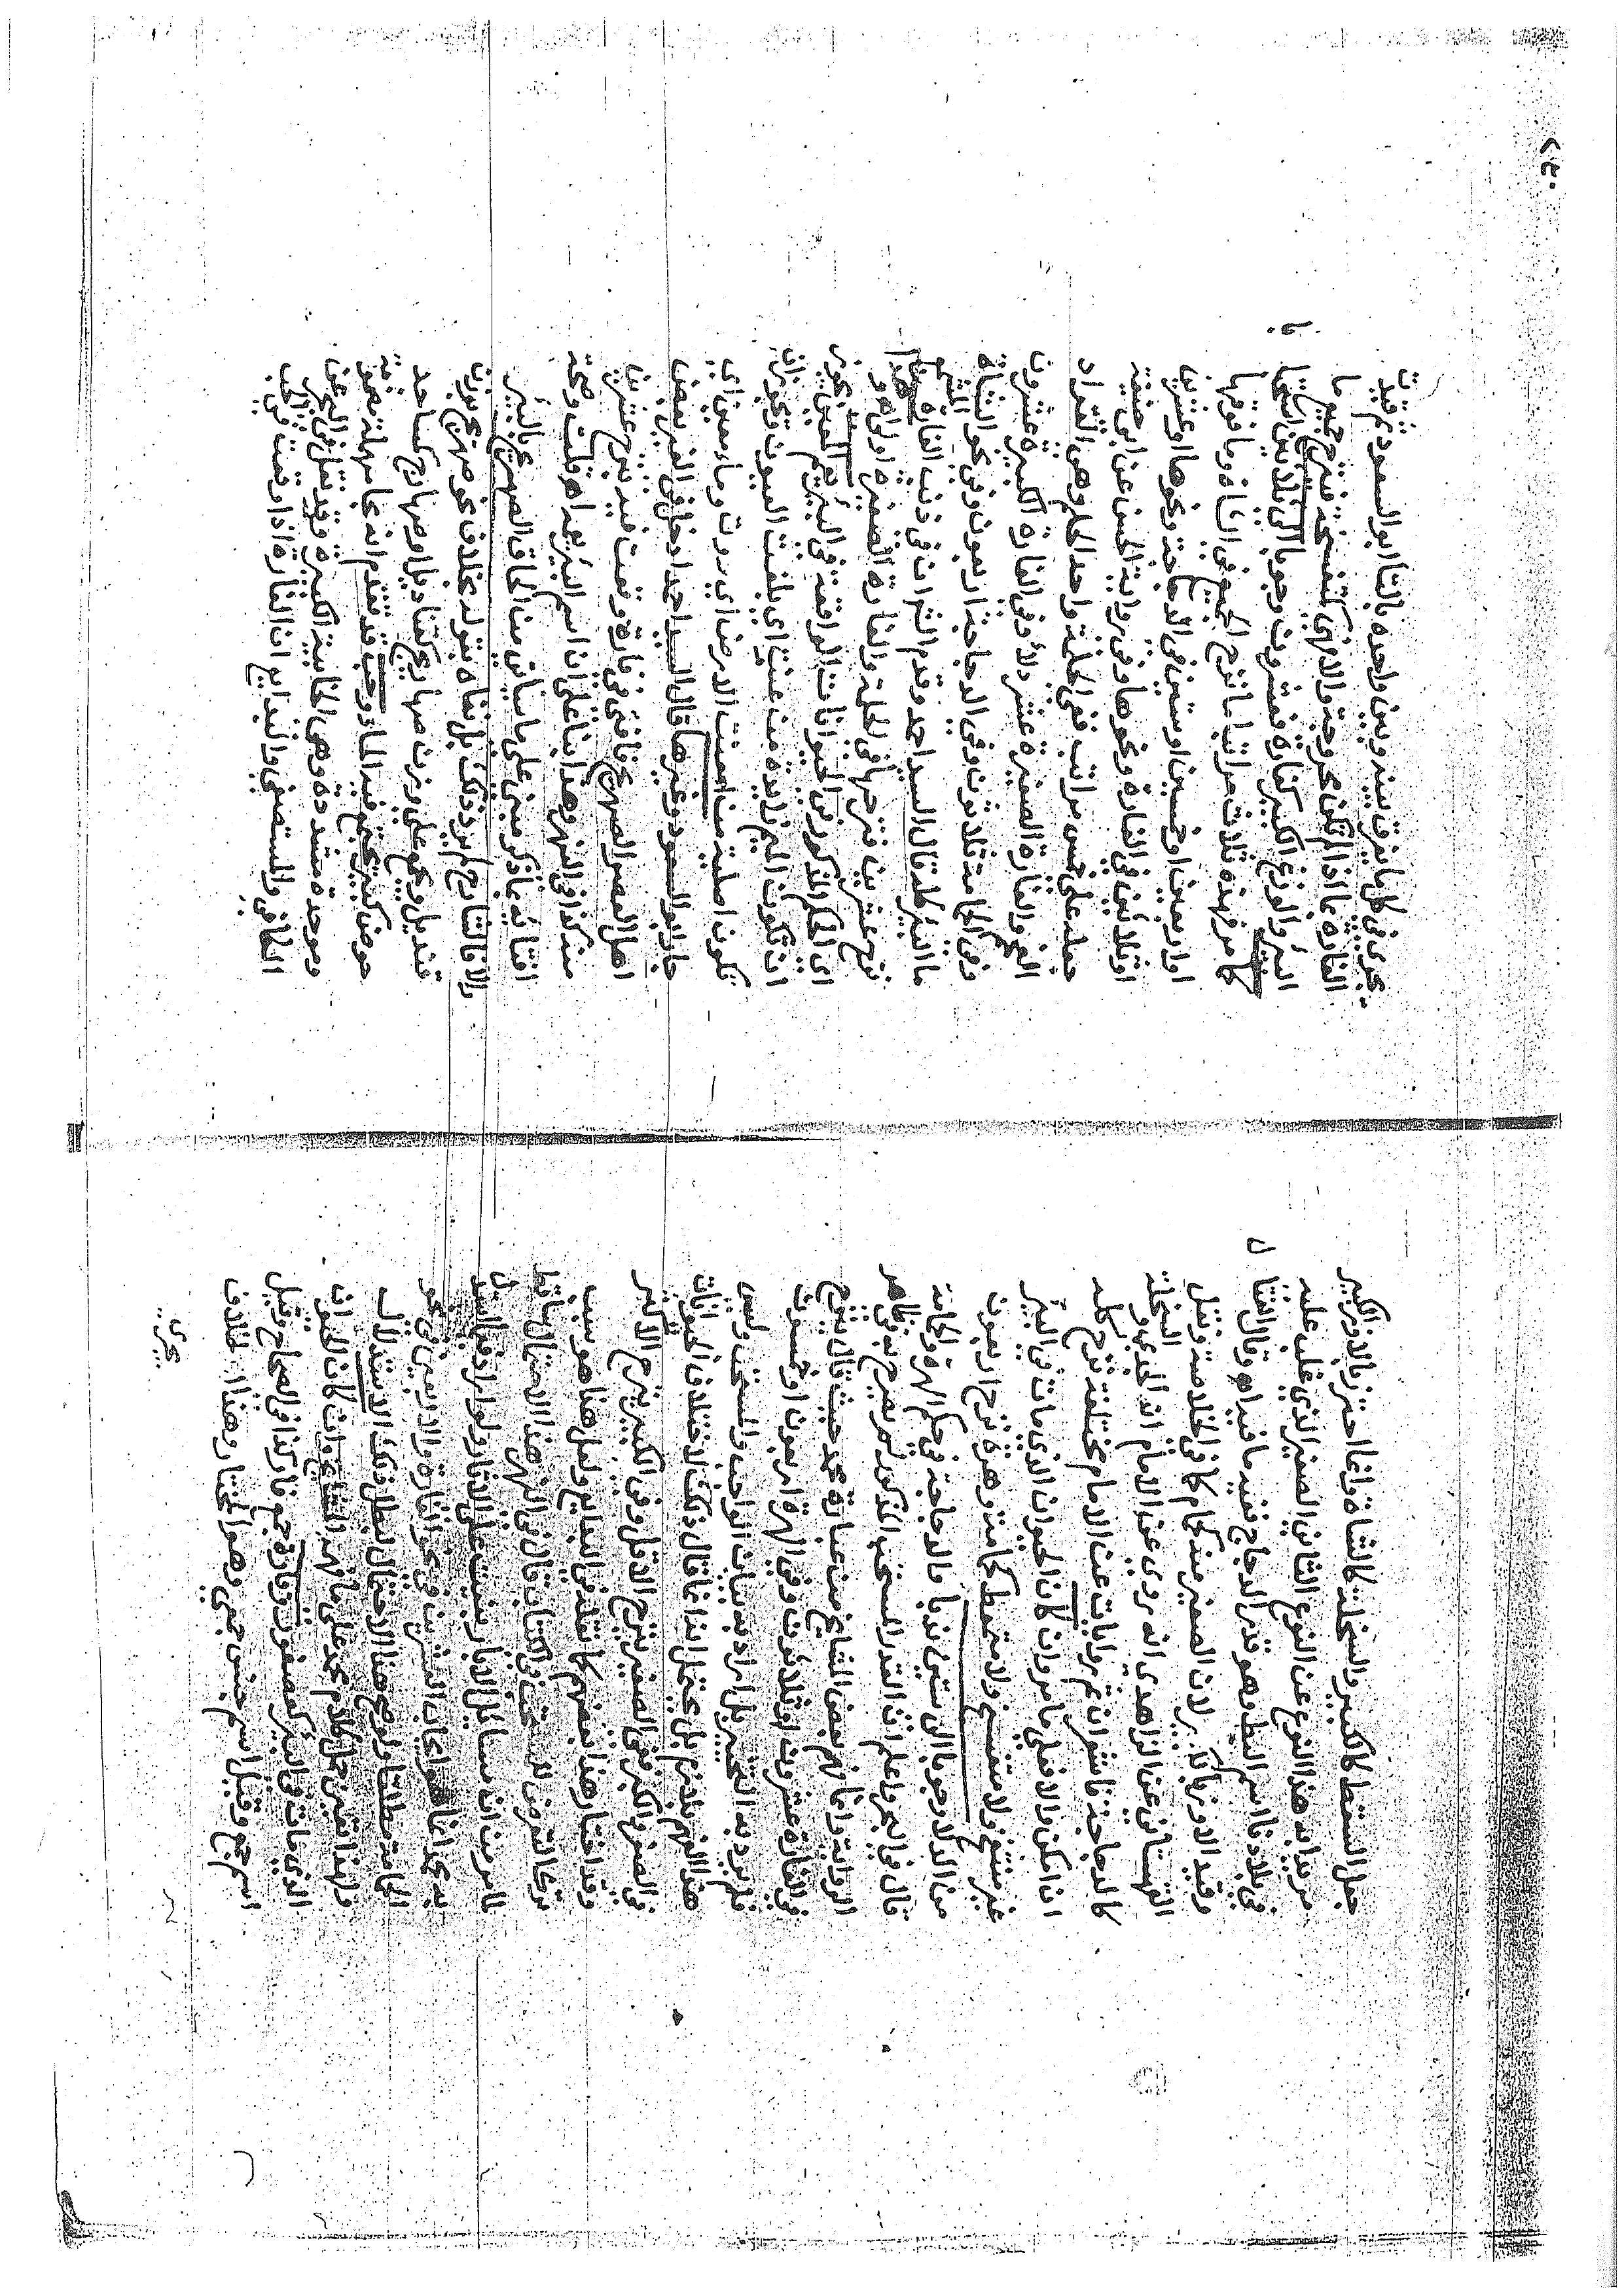 جعل السقط كالكبير والسخلة كالشاة وانما احترز بالاوز الكبير
مريدا به هذا النوع عن النوع الثاني الصغير الذي غلب عليه
في بلادنا اسم البط وهو قدر الدجاج ففيه ما فيها هو وقال القتال
وقيد الاوز بالكبير لان الصغير منه كحمام كما في الخلاصة ونقل
القهستاني عن الزاهدي انه روي عن الامام ان الجدي والسخلة
كالدجاجة ثم روايات عن الامام مختلفة نزح كله
ان امكن والا فعلى ما مر وان كان الحيوان الذي مات في البير
غير منتفخ ولا متفسخ ولا متمعط كحمامة وهرة نزح اربعون
من الدلاء وجوبا الى ستين ندبا والدجاجة في حكم الهرة والحمامة
قال في البحر واعلم ان القدر المستحب المذكور لم يصرح به في ظاهر
الرواية وانما فهم بعض المشايخ من عبارة محمد حيث قال ينزح
في الفارة عشرون او ثلاثون وفي الهرة اربعون او خمسون
فلم يرد به التخيير بل اراد به بيان الواجب والمستحب وليس
هذا الفهم بلازم بل يحتمل انه انما قال ذلك لاختلاف الحيوانات
في الصغر والكبر ففي الصغير ينزح الاقل وفي الكبير ينزح الاكثر
وقد اختار هذا بعضهم كما نقله في البدايع ولعل هذا هو سبب
ترك التعرض للمستحب في الكتاب قال في النهر هذا الاحتمال ساقط
لما مر من ان مسائل الابار بنيت على الاثار والوارد
به محمد انما هو ايجاب العشرين في نحو الفارة والاربعين في نحو
الحمامة مطلقا ولو صح هذا الاحتمال لبطل ذلك الاستدلال
ولهذا تعين حمل كلام محمد على ما فهمه المشايخ وان كان الحيوان
الذي مات في البير كعصفور وفارة جمع فار كذا في الصحاح وقيل
اسم جمع وقيل اسم جنس جمعي وهو المختار وهذا الخلاف
يجري
٢٤٠
يجري في كل ما يفرق بينه وبين واحده بالتا ابو السعود ثم قيدت
الفارة بما اذا لم تكن مجروحة والا فهي كمتفسخة فينزح جميع ما
البير والوزغ الكبير كفارة فعشرون وجوبا الى ثلاثين استحبابا
كما مر فهذه ثلاث مراتب ما نزح الجميع في الشاة وما فوقها
او اربعين او خمسين او ستين في الدجاجة ونحوها او عشرين
او ثلاثين في الفارة ونحوها وفي رواية الحسن عن ابي حنيفة
جعله على خمس مراتب ففي الحلمة واحد الحلم وهي القراد
الخ والفارة الصغيرة عشر دلاء وفي الفارة الكبيرة عشرون
وفي الحمامة ثلاثون وفي الدجاجة اربعون وفي نحو الشاة
ما البير كله قال السيد احمد وقدم الشم ان في ذنب الفارة
نزح عشرين فنزحها في الحلمة والفارة الصغيرة اولى اهو وهذا
اي الحكم المذكور في الحيوانات الواقعة في البير يعم المعين يجوز
ان تكون الميم زايدة من عنت اي بلغت العيون ويجوز ان
تكون اصلية من امعنت الارض اي رويت وماء معين اي
جار ابو السعود وغيرها قال السيد احمد ادخل في الغير بعض
اهل العصر الصهريج فافتى في فارة وقعت فيه بنزح عشرين
منه كذا في النهر وهذا بناء على ان اسم البير يعم اه وقلت وصحة
افتائه بما ذكر مبني على ما سياتي من الحاق الصهريج بالبير
والا فالشارح لم يرد ذلك بل نفاه بقوله بخلاف نحو صهريج بوزن
قنديل ويجمع على وزن صهاريج كقناديل وصهارج كمساجد
حوض كبير يجتمع فيه الماء وحب قد تقدم انه بحا مهملة مضمومة
وموحدة مشددة وهي الخابية الكبيرة وقد نقل في البحر عن
الكافي والمستصفى والبدايع ان الفارة اذا وقعت في الحب